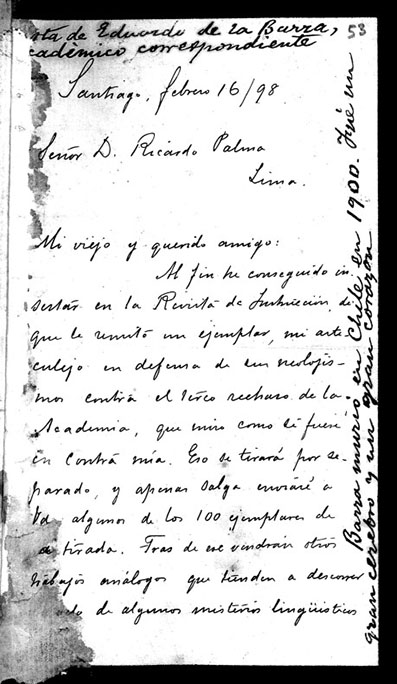 de Eduardo de la Barza,
académico correspondiente
53
Santiago, febrero 16/98
Señor D. Ricardo Palma
Lima.
Mi viejo y querido amigo:
Al fin he conseguido in
sertar en la Revista de Instrucción, de
que le remito un ejemplar, mi arti
culejo en defensa de sus neologis-
mos contra el terco rechazo de la
Academia, que miro como si fuese
en contra mia. Eso se tirará por se-
parado, y apenas salga enviaré a
Vd algunos de los 100 ejemplares de
la tirada. Tras de ese vendrán otros
trabajos análogos que tienden a descorrer
de algunos misterios lingüisticos
Barza murió en Chile en 1900. Fué un
gran cerebro y un gran corazón